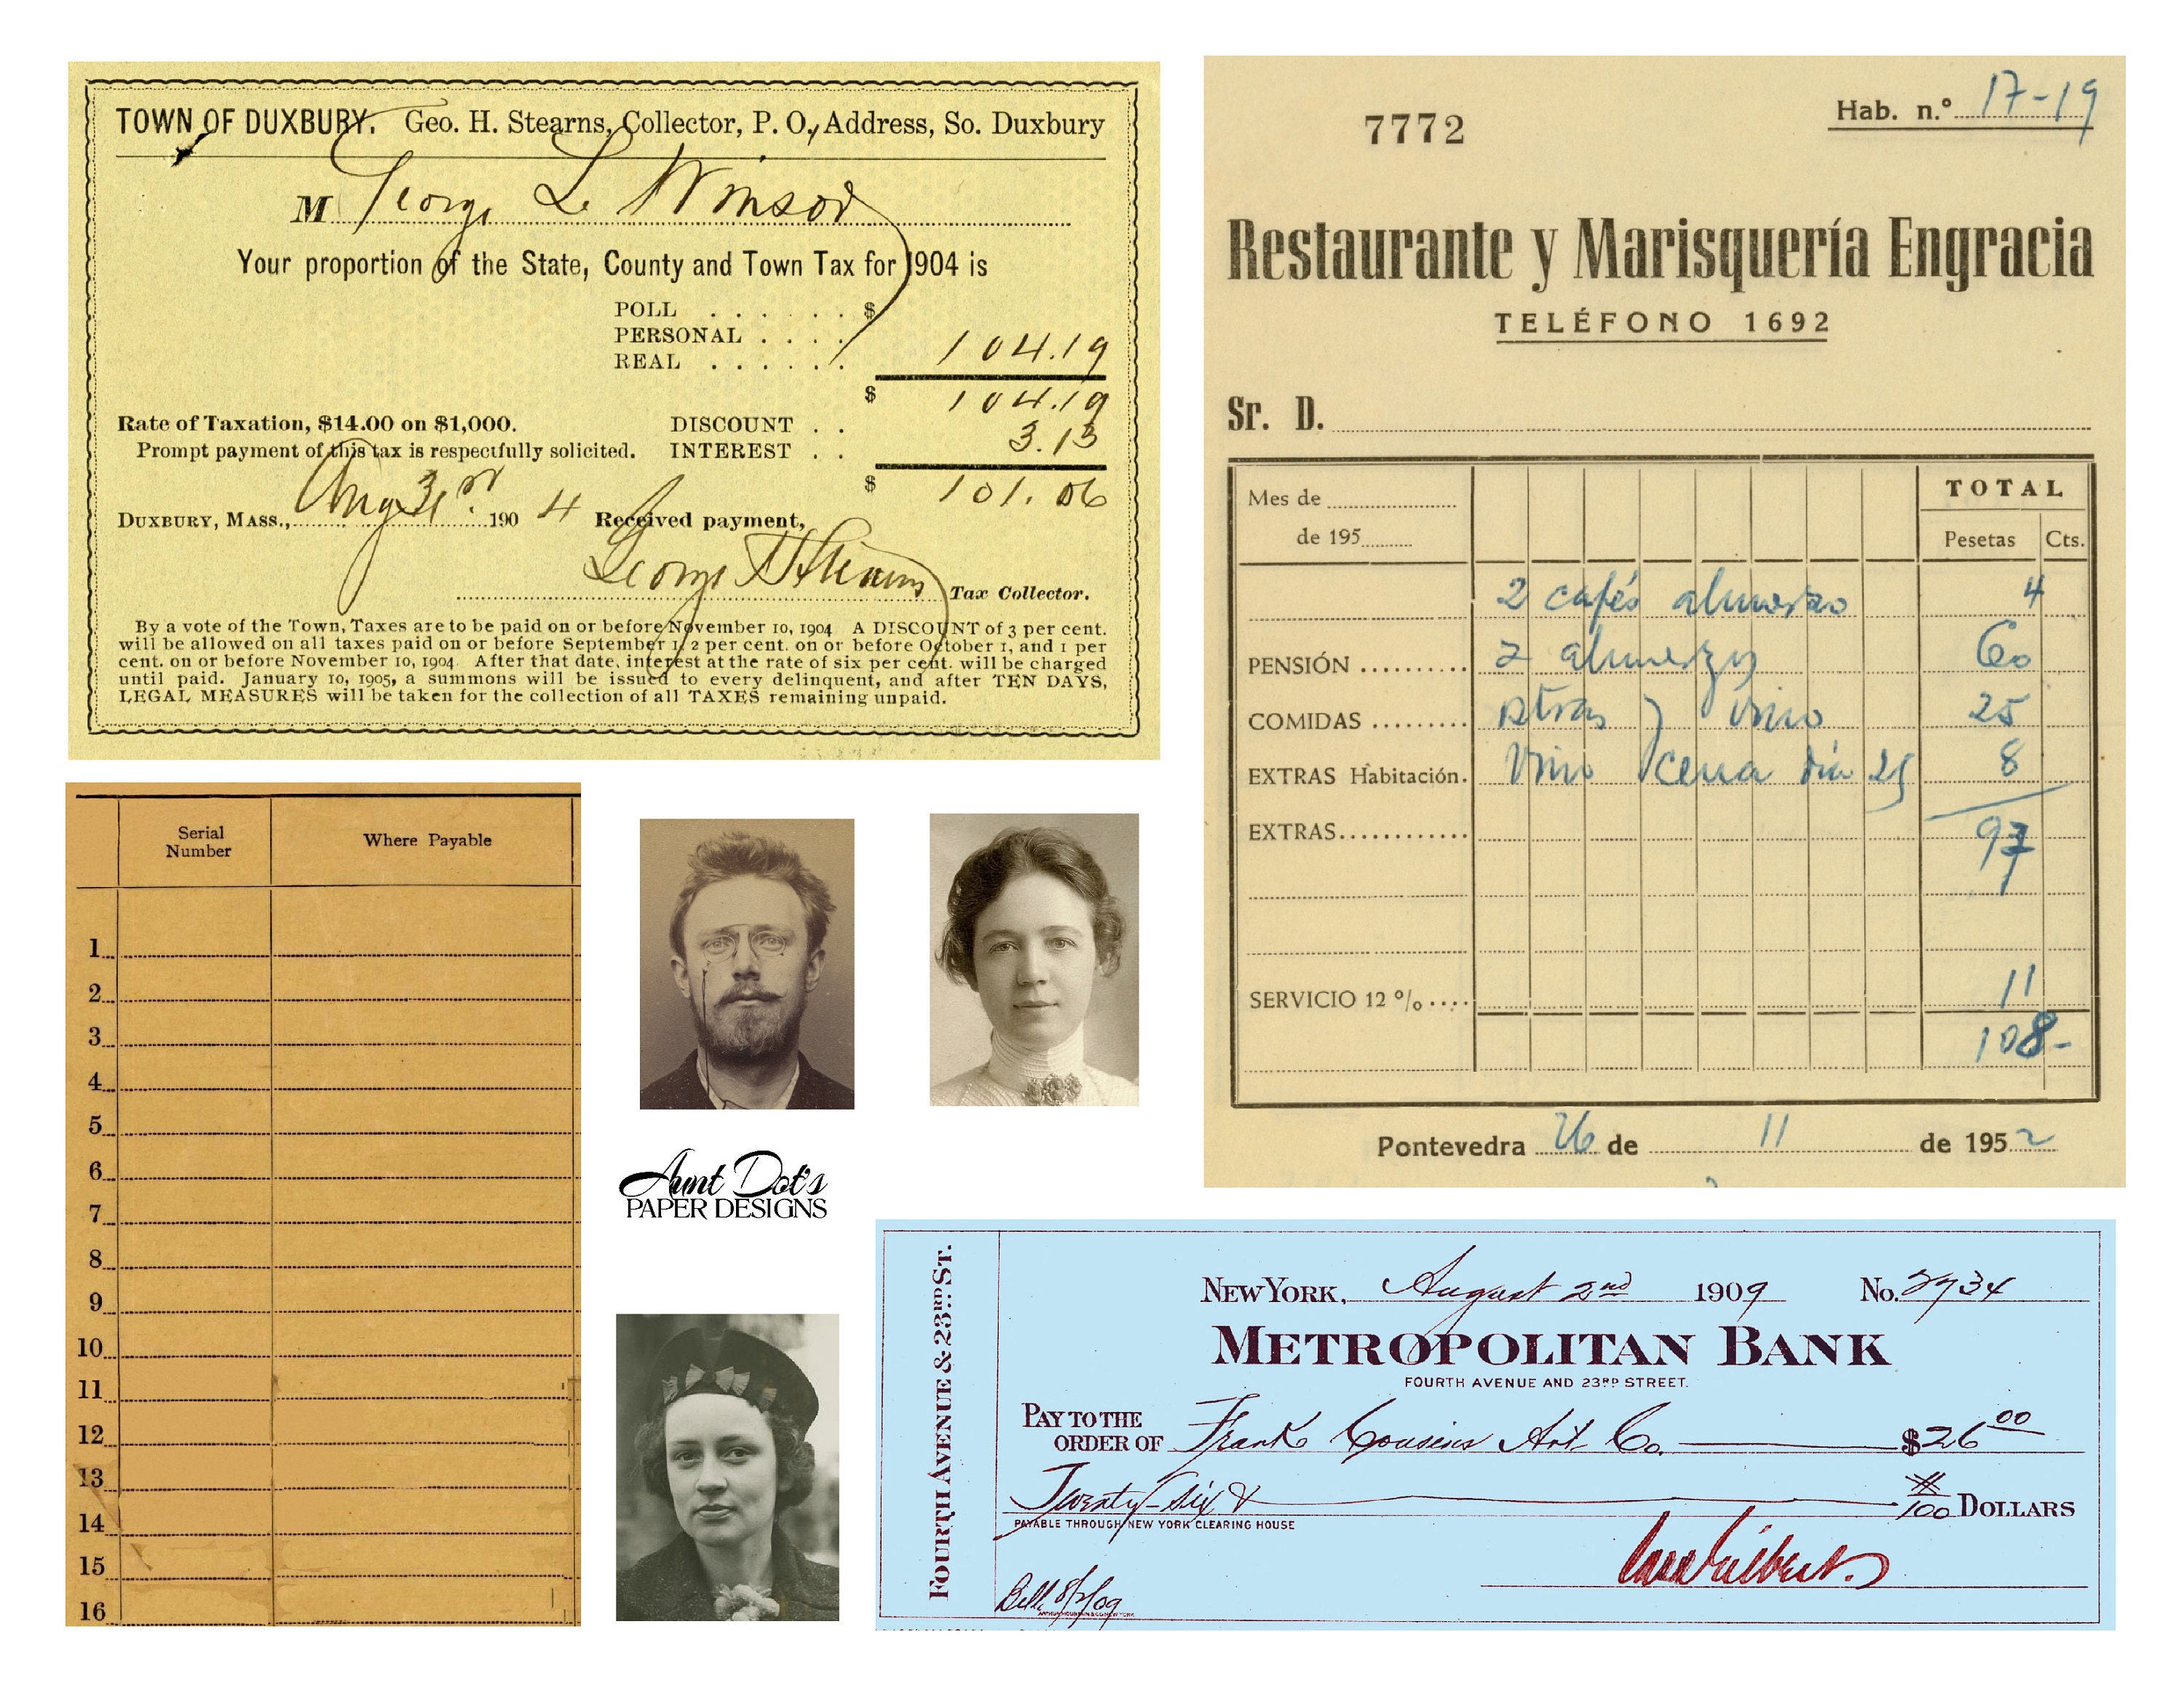 TOWN OF DUXBURY. Geo. H. Stearns, Collector, P. O, Address, So. Duxbury
M George L Winsor
Your proportion of the State, County and Town Tax for 1904 is
POLL . . . . . . $
PERSONAL . . . .
REAL . . . . . . 104.19
$ 104.19
Rate of Taxation, $14.00 on $1,000. DISCOUNT . . 3.13
Prompt payment of this tax is respectfully solicited. INTEREST . .
$ 101.06
DUXBURY, MASS., Aug 31st 1904 Received payment,
George H Stearns Tax Collector.
By a vote of the Town, Taxes are to be paid on or before November 10, 1904 A DISCOUNT of 3 per cent.
will be allowed on all taxes paid on or before September 1, 2 per cent. on or before October 1, and 1 per
cent. on or before November 10, 1904. After that date, interest at the rate of six per cent. will be charged
until paid. January 10, 1905, a summons will be issued to every delinquent, and after TEN DAYS,
LEGAL MEASURES will be taken for the collection of all TAXES remaining unpaid.
7772 Hab. n.º 17-19
Restaurante y Marisquería Engracia
TELÉFONO 1692
Sr. D.
Mes de TOTAL
de 195 Pesetas Cts.
2 cafés almuerzo 4
PENSIÓN .......... 2 almuerzos 60
COMIDAS ......... vino 25
EXTRAS Habitación. Vino cena día 25 8
EXTRAS............ 97
SERVICIO 12 %.... 11
108-
Pontevedra 26 de 11 de 1952
Serial Number Where Payable
1
2
3
4
5
6
7
8
9
10
11
12
13
14
15
16
Aunt Dot's
PAPER DESIGNS
FOURTH AVENUE & 23RD ST.
NEW YORK, August 2nd 1909 No. 2934
METROPOLITAN BANK
FOURTH AVENUE AND 23RD STREET.
PAY TO THE
ORDER OF Frank Cousins Art Co. $26 00
Twenty-six & 100 DOLLARS
PAYABLE THROUGH NEW YORK CLEARING HOUSE
Bill 8/2/09